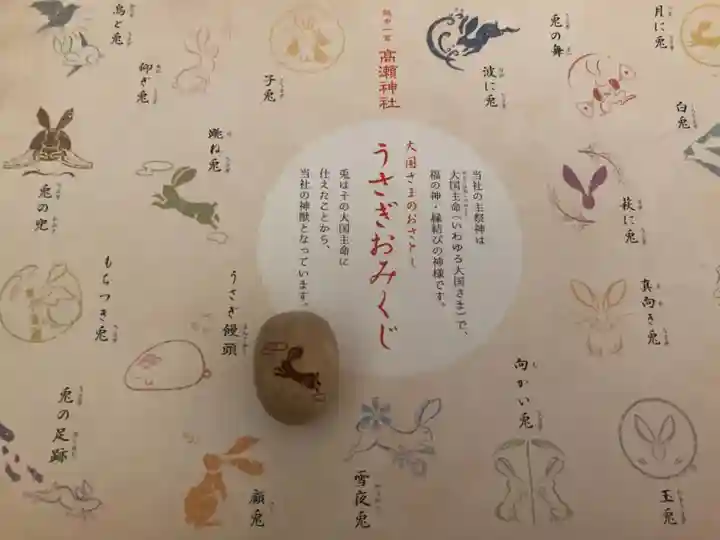 越中一宮
高瀬神社
大国さまのおさとし
うさぎおみくじ
当社の主祭神は
大国主命（いわゆる大国さま）で、
福の神・縁結びの神様です。
兎はその大国主命に
仕えたことから、
当社の神獣となっています。
月に兎
兎の舞
波に兎
子兎
仰ぎ兎
鳥と兎
白兎
萩に兎
跳ね兎
兎の兜
真向き兎
うさぎ饅頭
もちつき兎
向かい兎
玉兎
雪夜兎
顧兎
兎の足跡